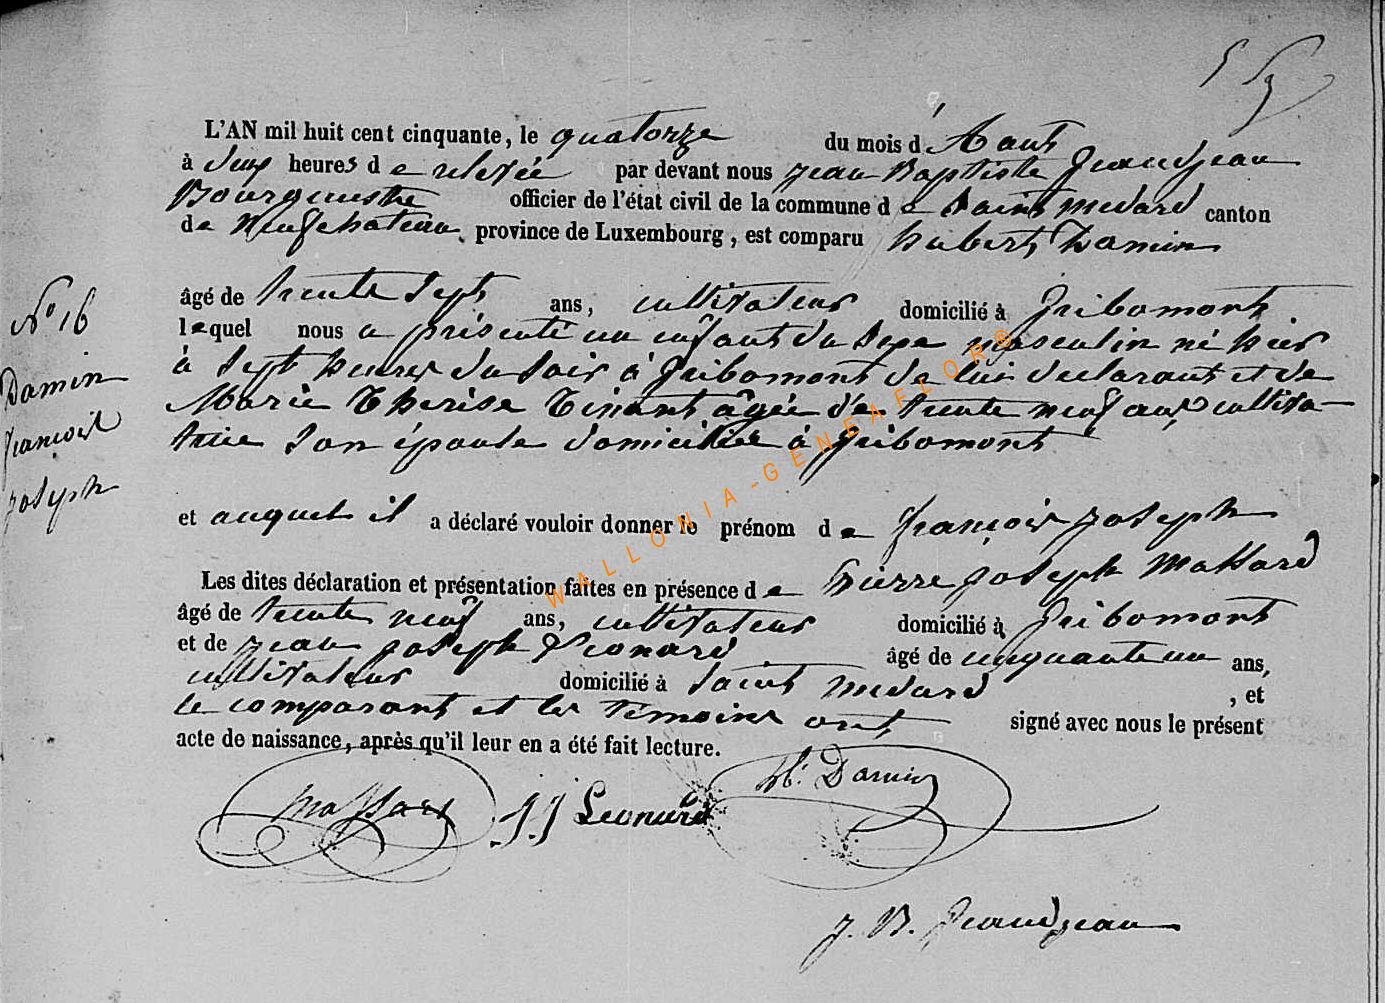 L'AN mil huit cent cinquante, le quatorze du mois d'Aout
à deux heures de relevée par devant nous jean Baptiste Grandjean
Bourgmestre officier de l'état civil de la commune de Saint médard canton
de Neufchateau, province de Luxembourg, est comparu hubert Damin
âgé de trente sept ans, cultivateur domicilié à Gribomont
lequel nous a présenté un enfant du sexe masculin né hier
à sept heures du soir à Gribomont de lui déclarant et de
Marie Thérèse Tinant âgée de trente neuf ans, cultiva-
trice son épouse domiciliée à Gribomont
et auquel il a déclaré vouloir donner le prénom de françois joseph
Les dites déclaration et présentation faites en présence de Pierre joseph Massard
âgé de trente neuf ans, cultivateur domicilié à Gribomont
et de jean joseph Léonard âgé de cinquante un ans,
cultivateur domicilié à Saint médard, et
le comparant et les témoins ont signé avec nous le présent
acte de naissance, après qu'il leur en a été fait lecture.
N° 16
Damin
françois
joseph
Massard J J Leonard H. Damin
J. B. Grandjean
WALLONIA-GENEAFLOR®